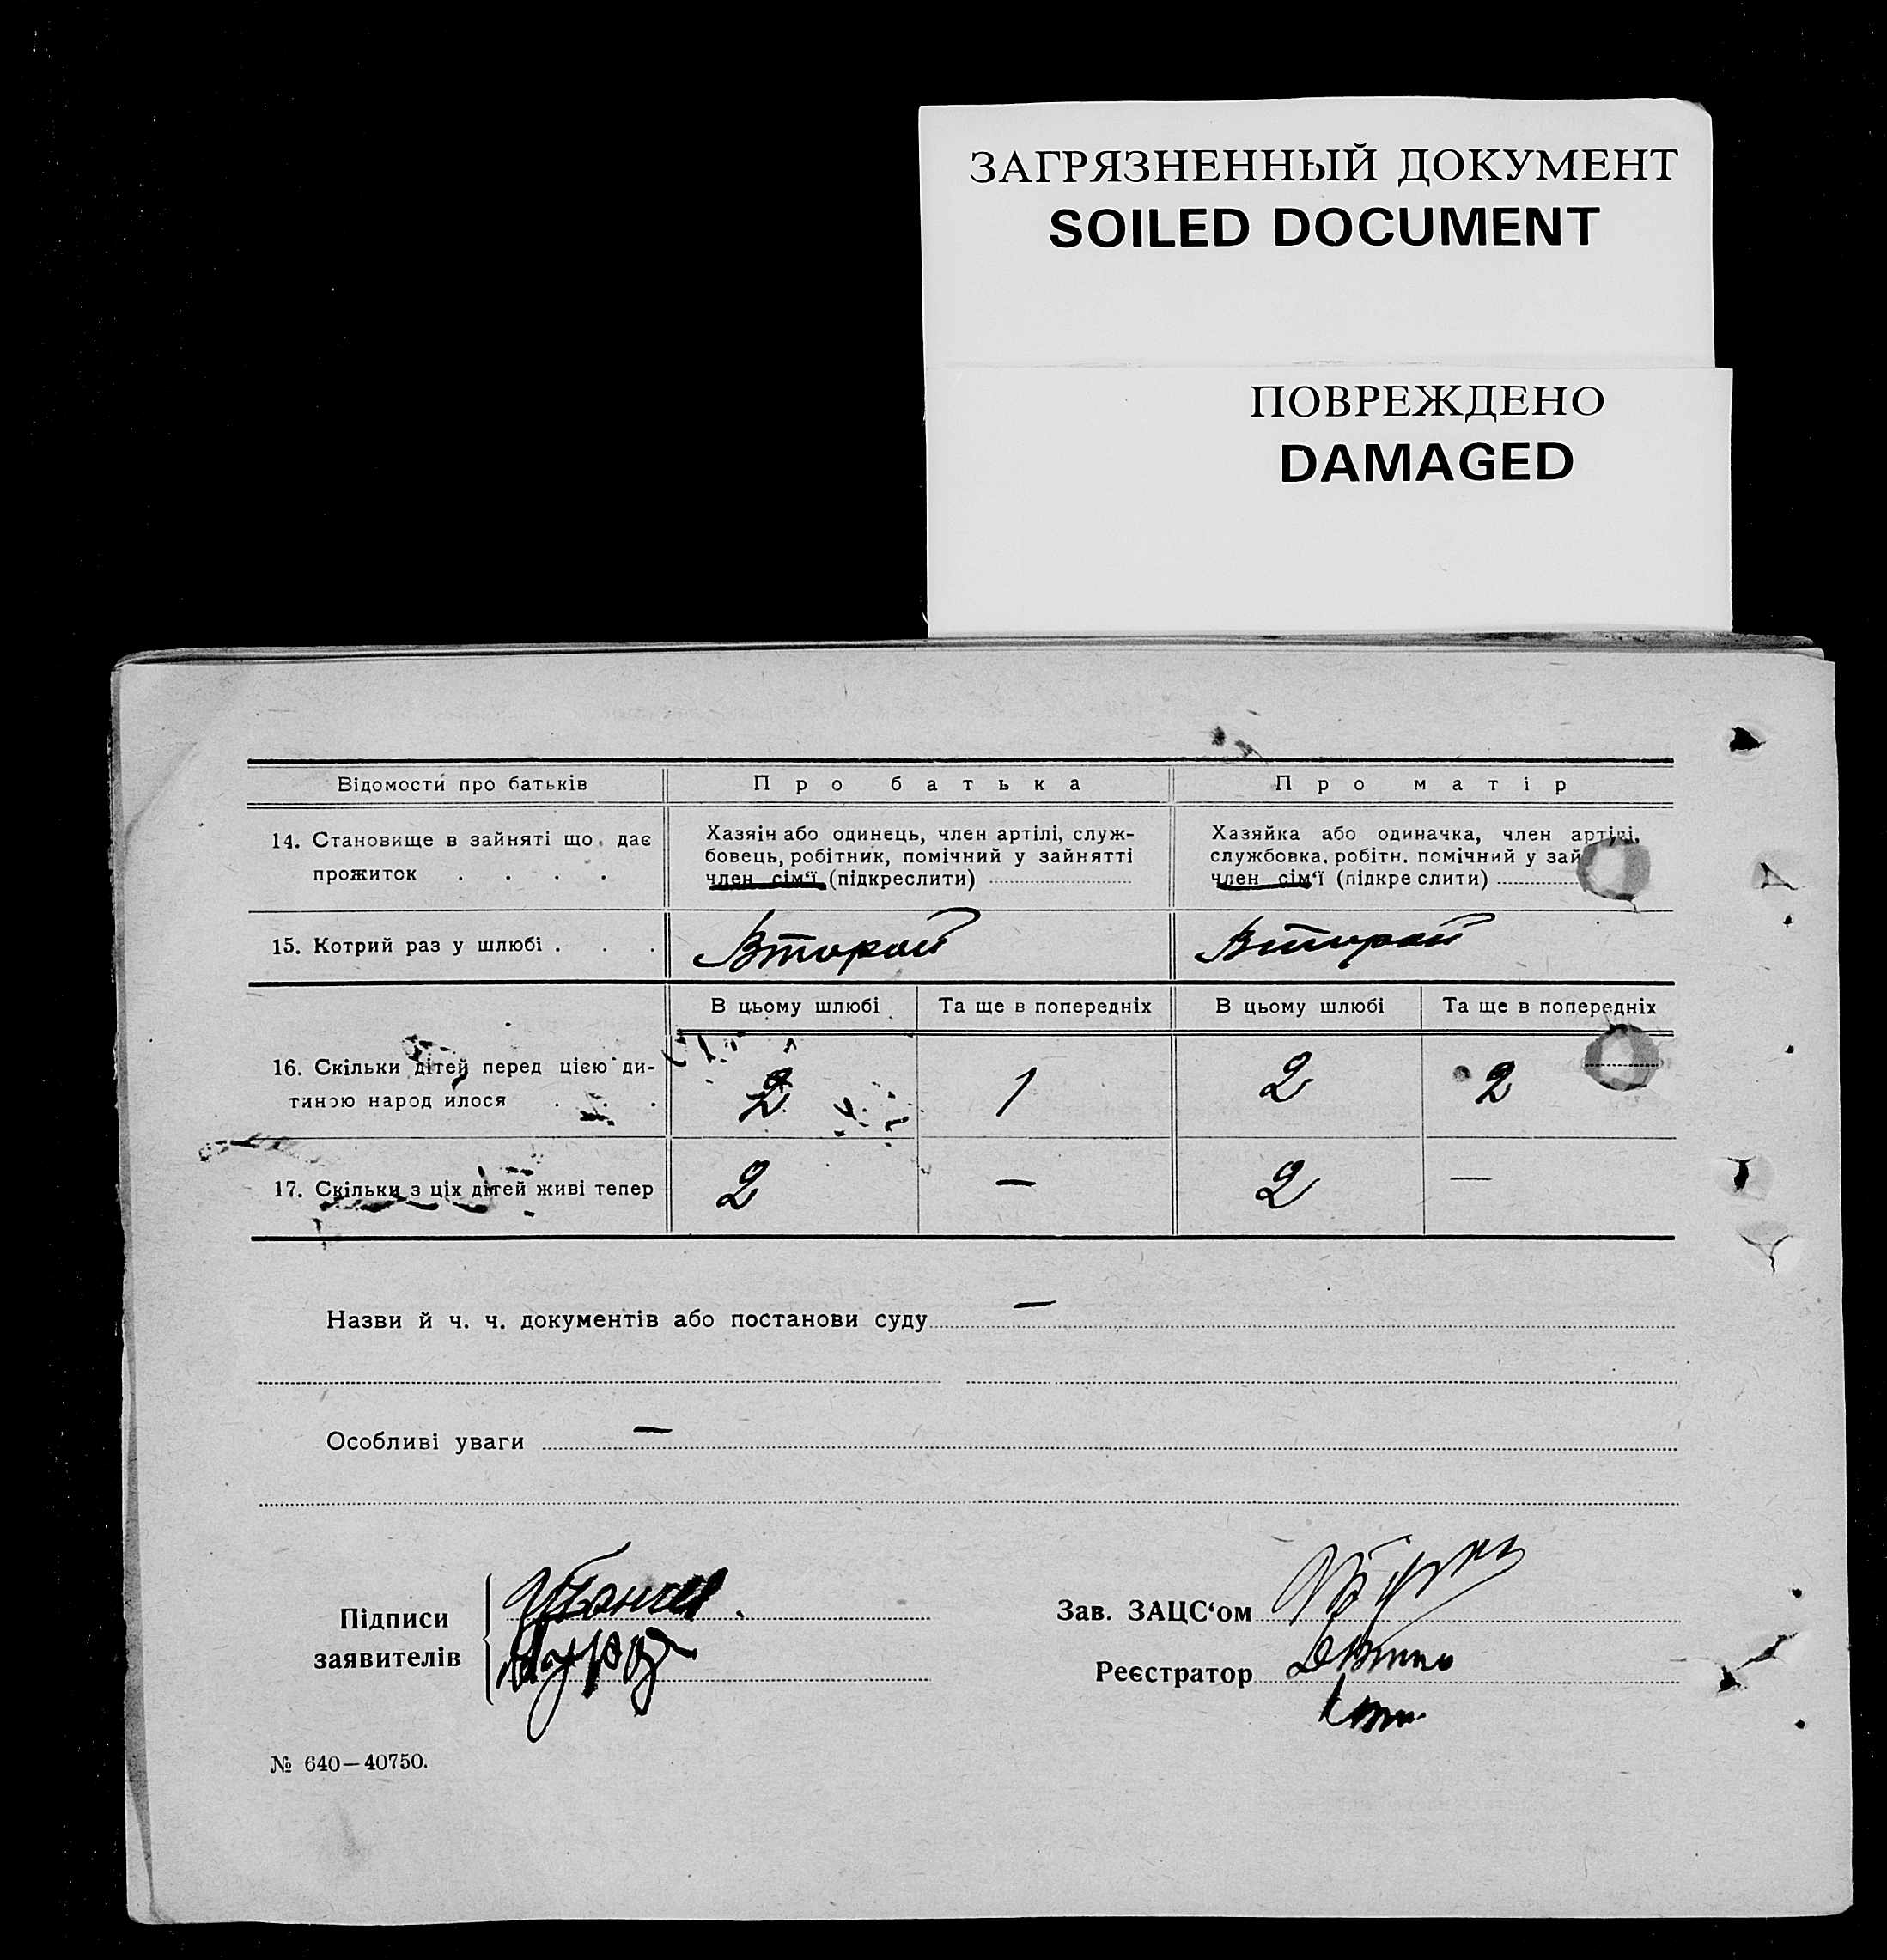 ЗАГРЯЗНЕННЫЙ ДОКУМЕНТ
SOILED DOCUMENT
ПОВРЕЖДЕНО
DAMAGED
Відомости про батьків
Про батька
Про матір
14. Становище в зайняті що дає
прожиток . . . .
Хазяін або одинець, член артілі, служ-
бовець, робітник, помічний у зайнятті
член сім‘ї (підкреслити)
Хазяйка або одиначка, член артілі,
службовка, робітн. помічний у зай
член сім‘ї (підкреслити)
15. Котрий раз у шлюбі . . .
Второй
Второй
В цьому шлюбі
Та ще в попередніх
В цьому шлюбі
Та ще в попередніх
16. Скільки дітей перед цією ди-
тиною народилося . . .
2
1
2
2
17. Скільки з ціх дітей живі тепер
2
—
2
—
Назви й ч. ч. документів або постанови суду —
Особливі уваги —
Підписи
заявителів
Зав. ЗАЦС‘ом
Реєстратор
№ 640—40750.